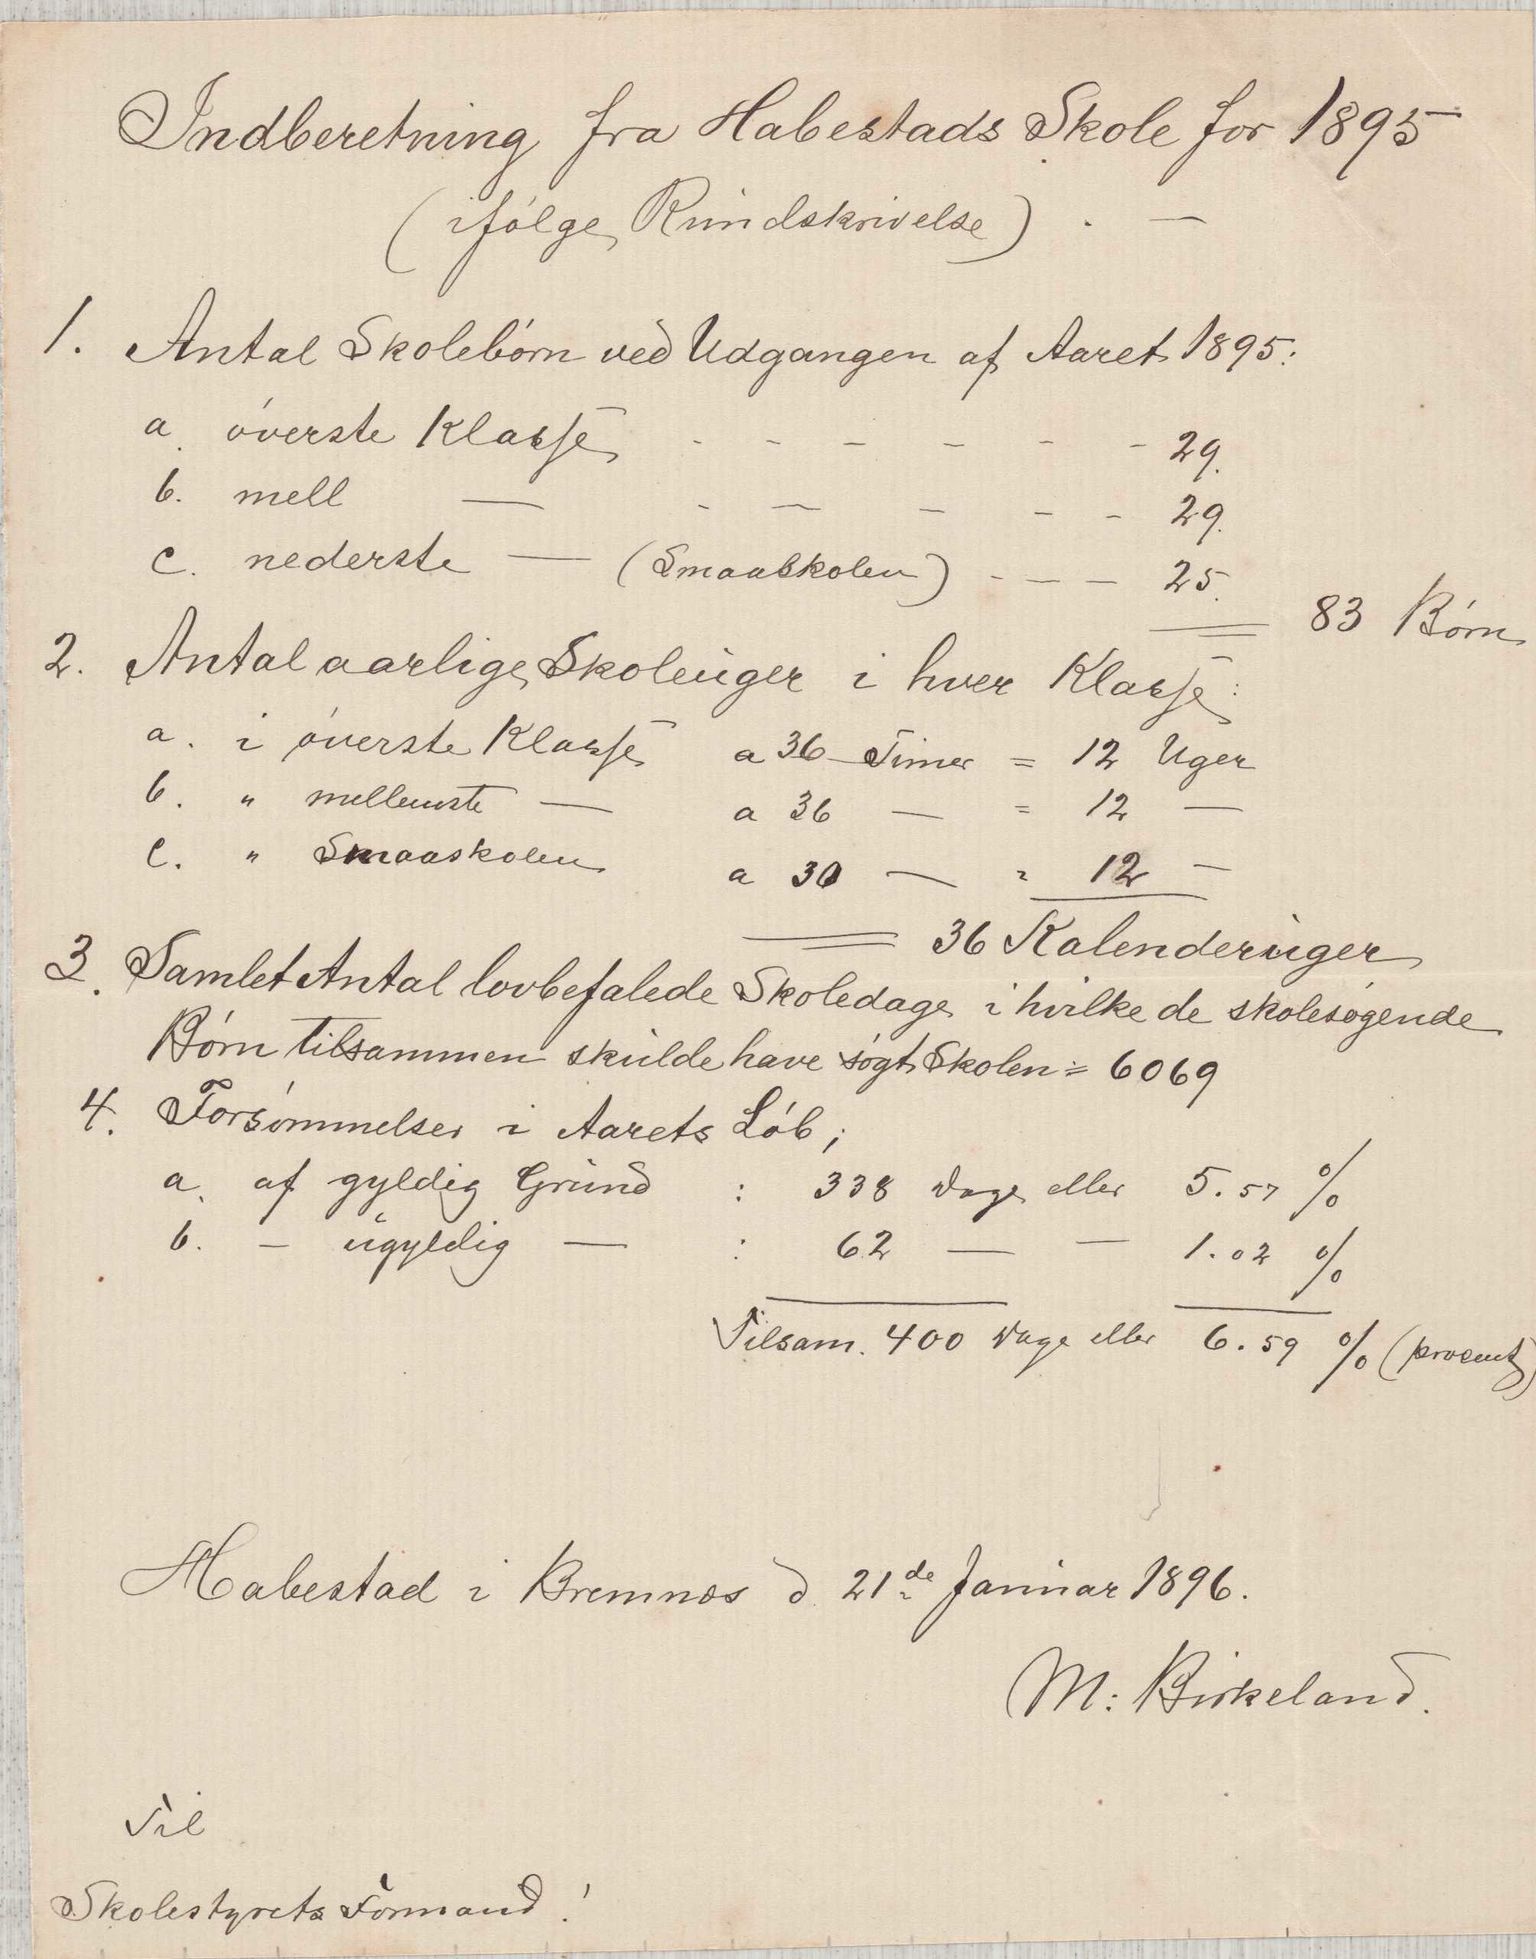 Indberetning fra Habestads Skole for 1895
(ifólge Rundskrivelse) . —
1. Antal Skolebórn ved Udgangen af Aaret 1895:
a. óverste Klasse - - - - - - 29.
b. mell — - - - - - 29.
c. nederste — (Smaaskolen) - - - 25.
83 Bórn
2. Antal aarlige Skoleuger i hver Klasse:
a. i óverste Klasse a 36 Timer = 12 Uger
b. " mellemste — a 36 — = 12 —
c. " Smaaskolen a 30 — = 12 —
36 Kalenderuger
3. Samlet Antal lovbefalede Skoledage i hvilke de skolesógende
Bórn tilsammen skulde have sógt Skolen = 6069
4. Forsómmelser i Aarets Lób;
a. af gyldig Grund : 338 Dage eller 5.57 %
b. — ugyldig — : 62 — — 1.02 %
Tilsam. 400 Dage eller 6.59 % (procent)
Habestad i Bremnæs d. 21de Januar 1896.
M: Birkeland.
Til
Skolestyrets Formand!